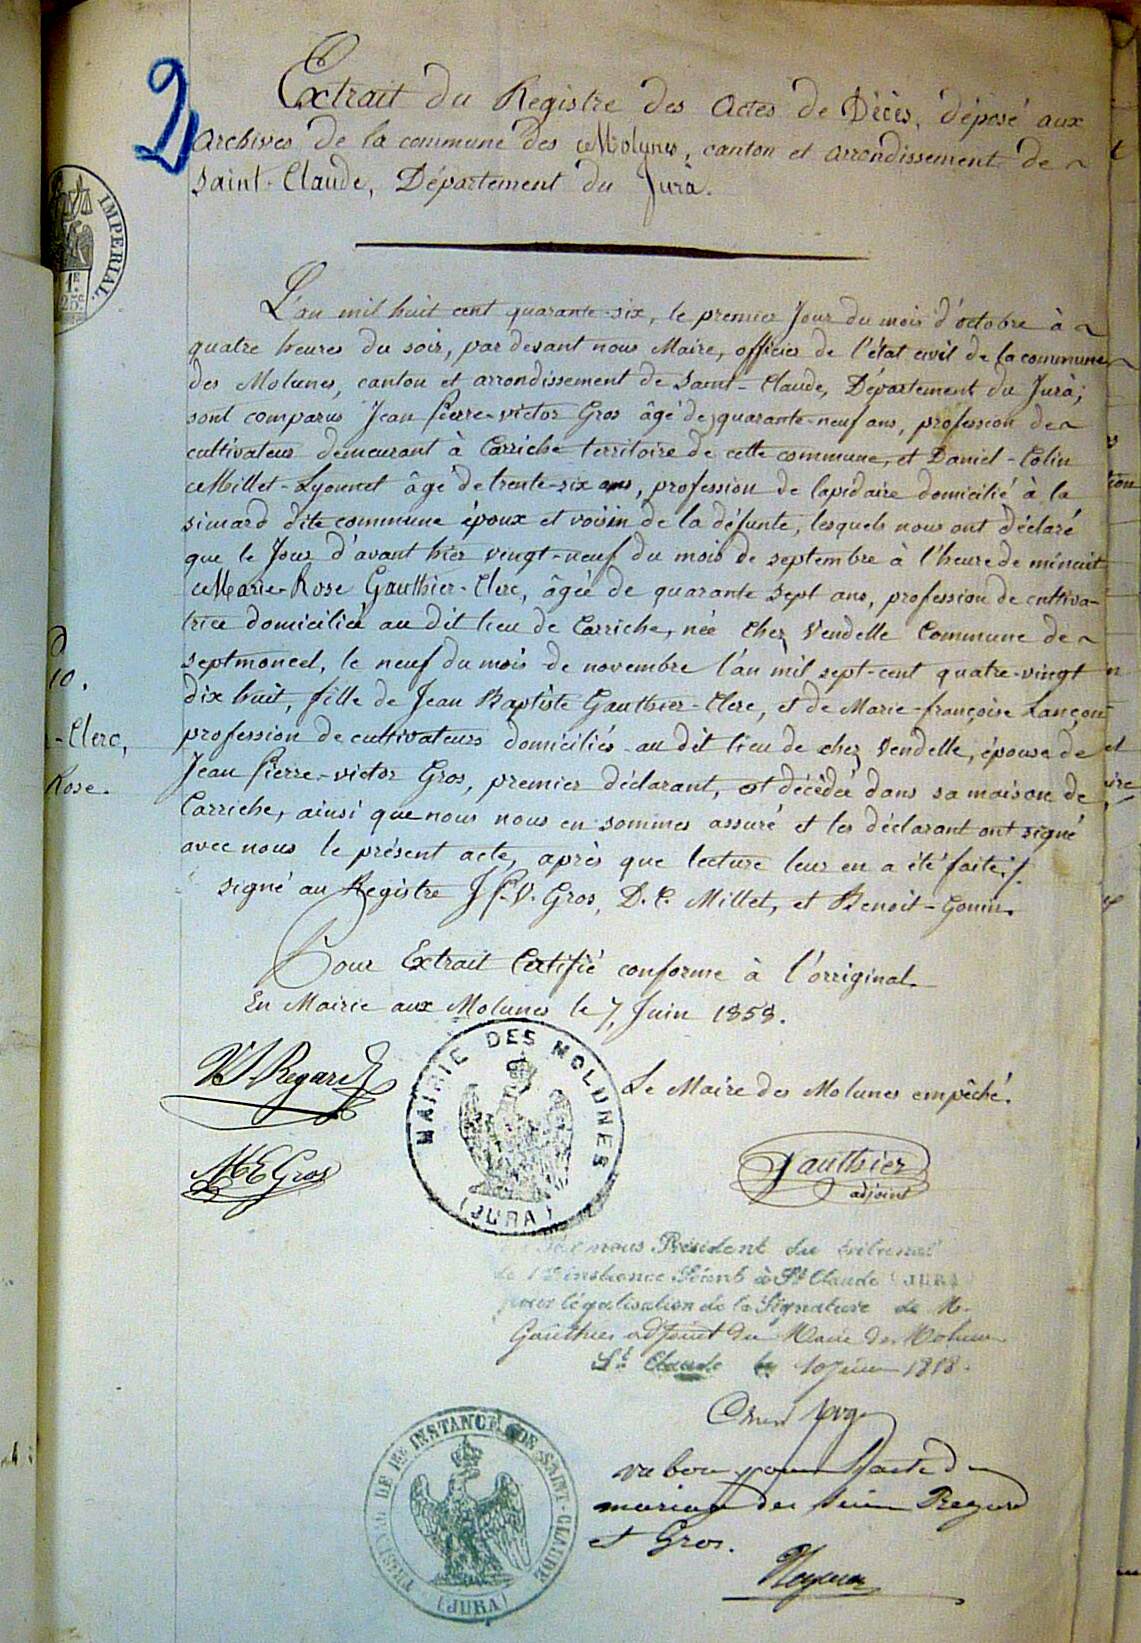 2
Extrait du Registre des Actes de Décès, déposé aux
Archives de la commune des Molunes, canton et arrondissement de
Saint-Claude, Département du Jura.
IMPERIAL.
1F
25c
L'an mil huit cent quarante-six, le premier Jour du mois d'octobre à
quatre heures du soir, par devant nous Maire, officier de l'état civil de la commune
des Molunes, canton et arrondissement de Saint-Claude, Département du Jura;
sont comparus Jean Pierre-victor Gros âgé de quarante-neuf ans, profession de
cultivateur demeurant à Carriche territoire de cette commune, et Daniel-Colin
Millet-Lyonnet âgé de trente-six ans, profession de lapidaire domicilié à la
simard dite commune époux et voisin de la défunte, lesquels nous ont déclaré
que le Jour d'avant hier vingt-neuf du mois de septembre à l'heure de minuit
Marie-Rose Gauthier-Clerc, âgée de quarante sept ans, profession de cultiva-
trice domiciliée au dit lieu de Carriche, née chez Vendelle Commune de
septmoncel, le neuf du mois de novembre l'an mil sept-cent quatre-vingt
dix huit, fille de Jean Baptiste Gauthier-Clerc, et de Marie-françoise Lançon
profession de cultivateurs domiciliés au dit lieu de chez Vendelle, épouse de
Jean Pierre-victor Gros, premier déclarant, est décédée dans sa maison de
Carriche, ainsi que nous nous en sommes assuré et les déclarant ont signé
avec nous le présent acte, après que lecture leur en a été faite./.
signé au Registre J.P.V. Gros, D.C. Millet, et Benoit-Gonin.
10.
-Clerc,
Rose.
Pour Extrait Certifié conforme à l'orriginal.
En Mairie aux Molunes le 7, Juin 1858.
V.J. Regard
MAIRIE DES MOLUNES
(JURA)
Le Maire des Molunes empêché.
Gros
Gauthier
adjoint
Par nous Président du tribunal
de 1re instance Séant à St Claude (JURA)
pour légalisation de la Signature de M.
Gauthier adjoint du Maire des Molunes
St. Claude le 10 Juin 1858.
vu bon pour l'acte de
mariage des sieur Regard
et Gros.
TRIBUNAL DE 1RE INSTANCE DE SAINT-CLAUDE
(JURA)